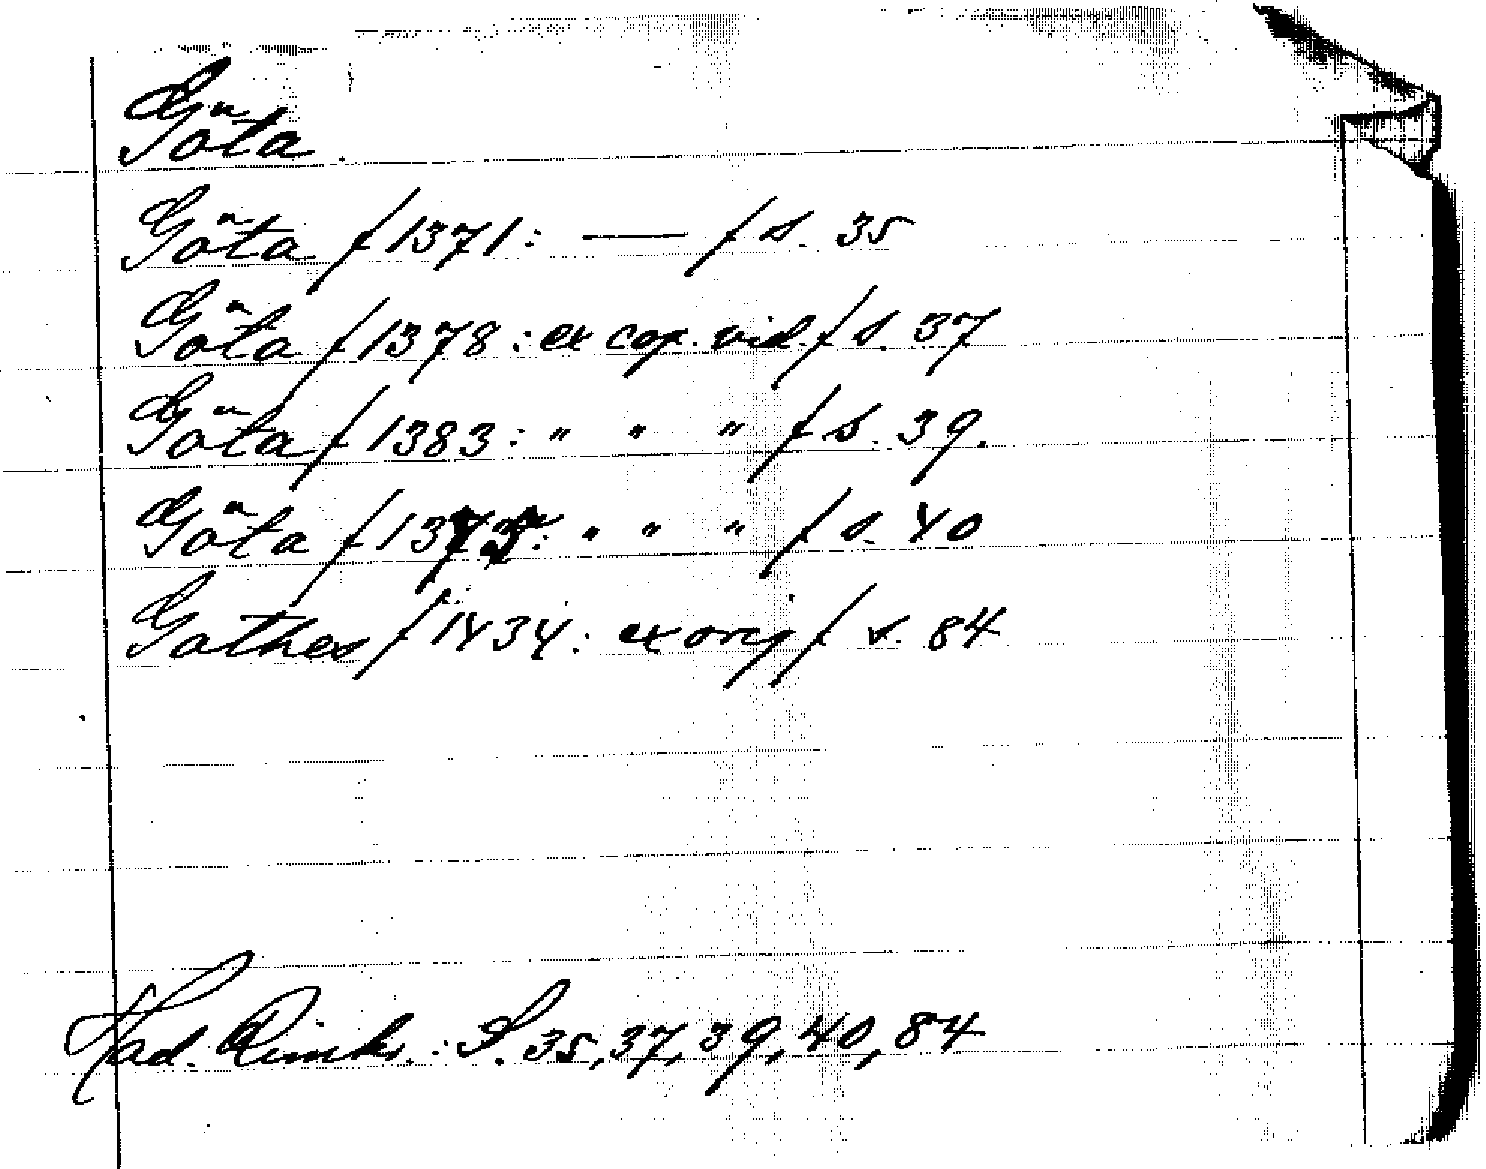 Göta.
Göta / 1371: — / s. 35
Göta / 1378: ex cop. vid. / s. 37
Göta / 1383: " " " / s. 39.
Göta / 1375: " " " / s. 40
Gothes / 1434: ex orig / s. 84
Had. : S. 35, 37, 39, 40, 84